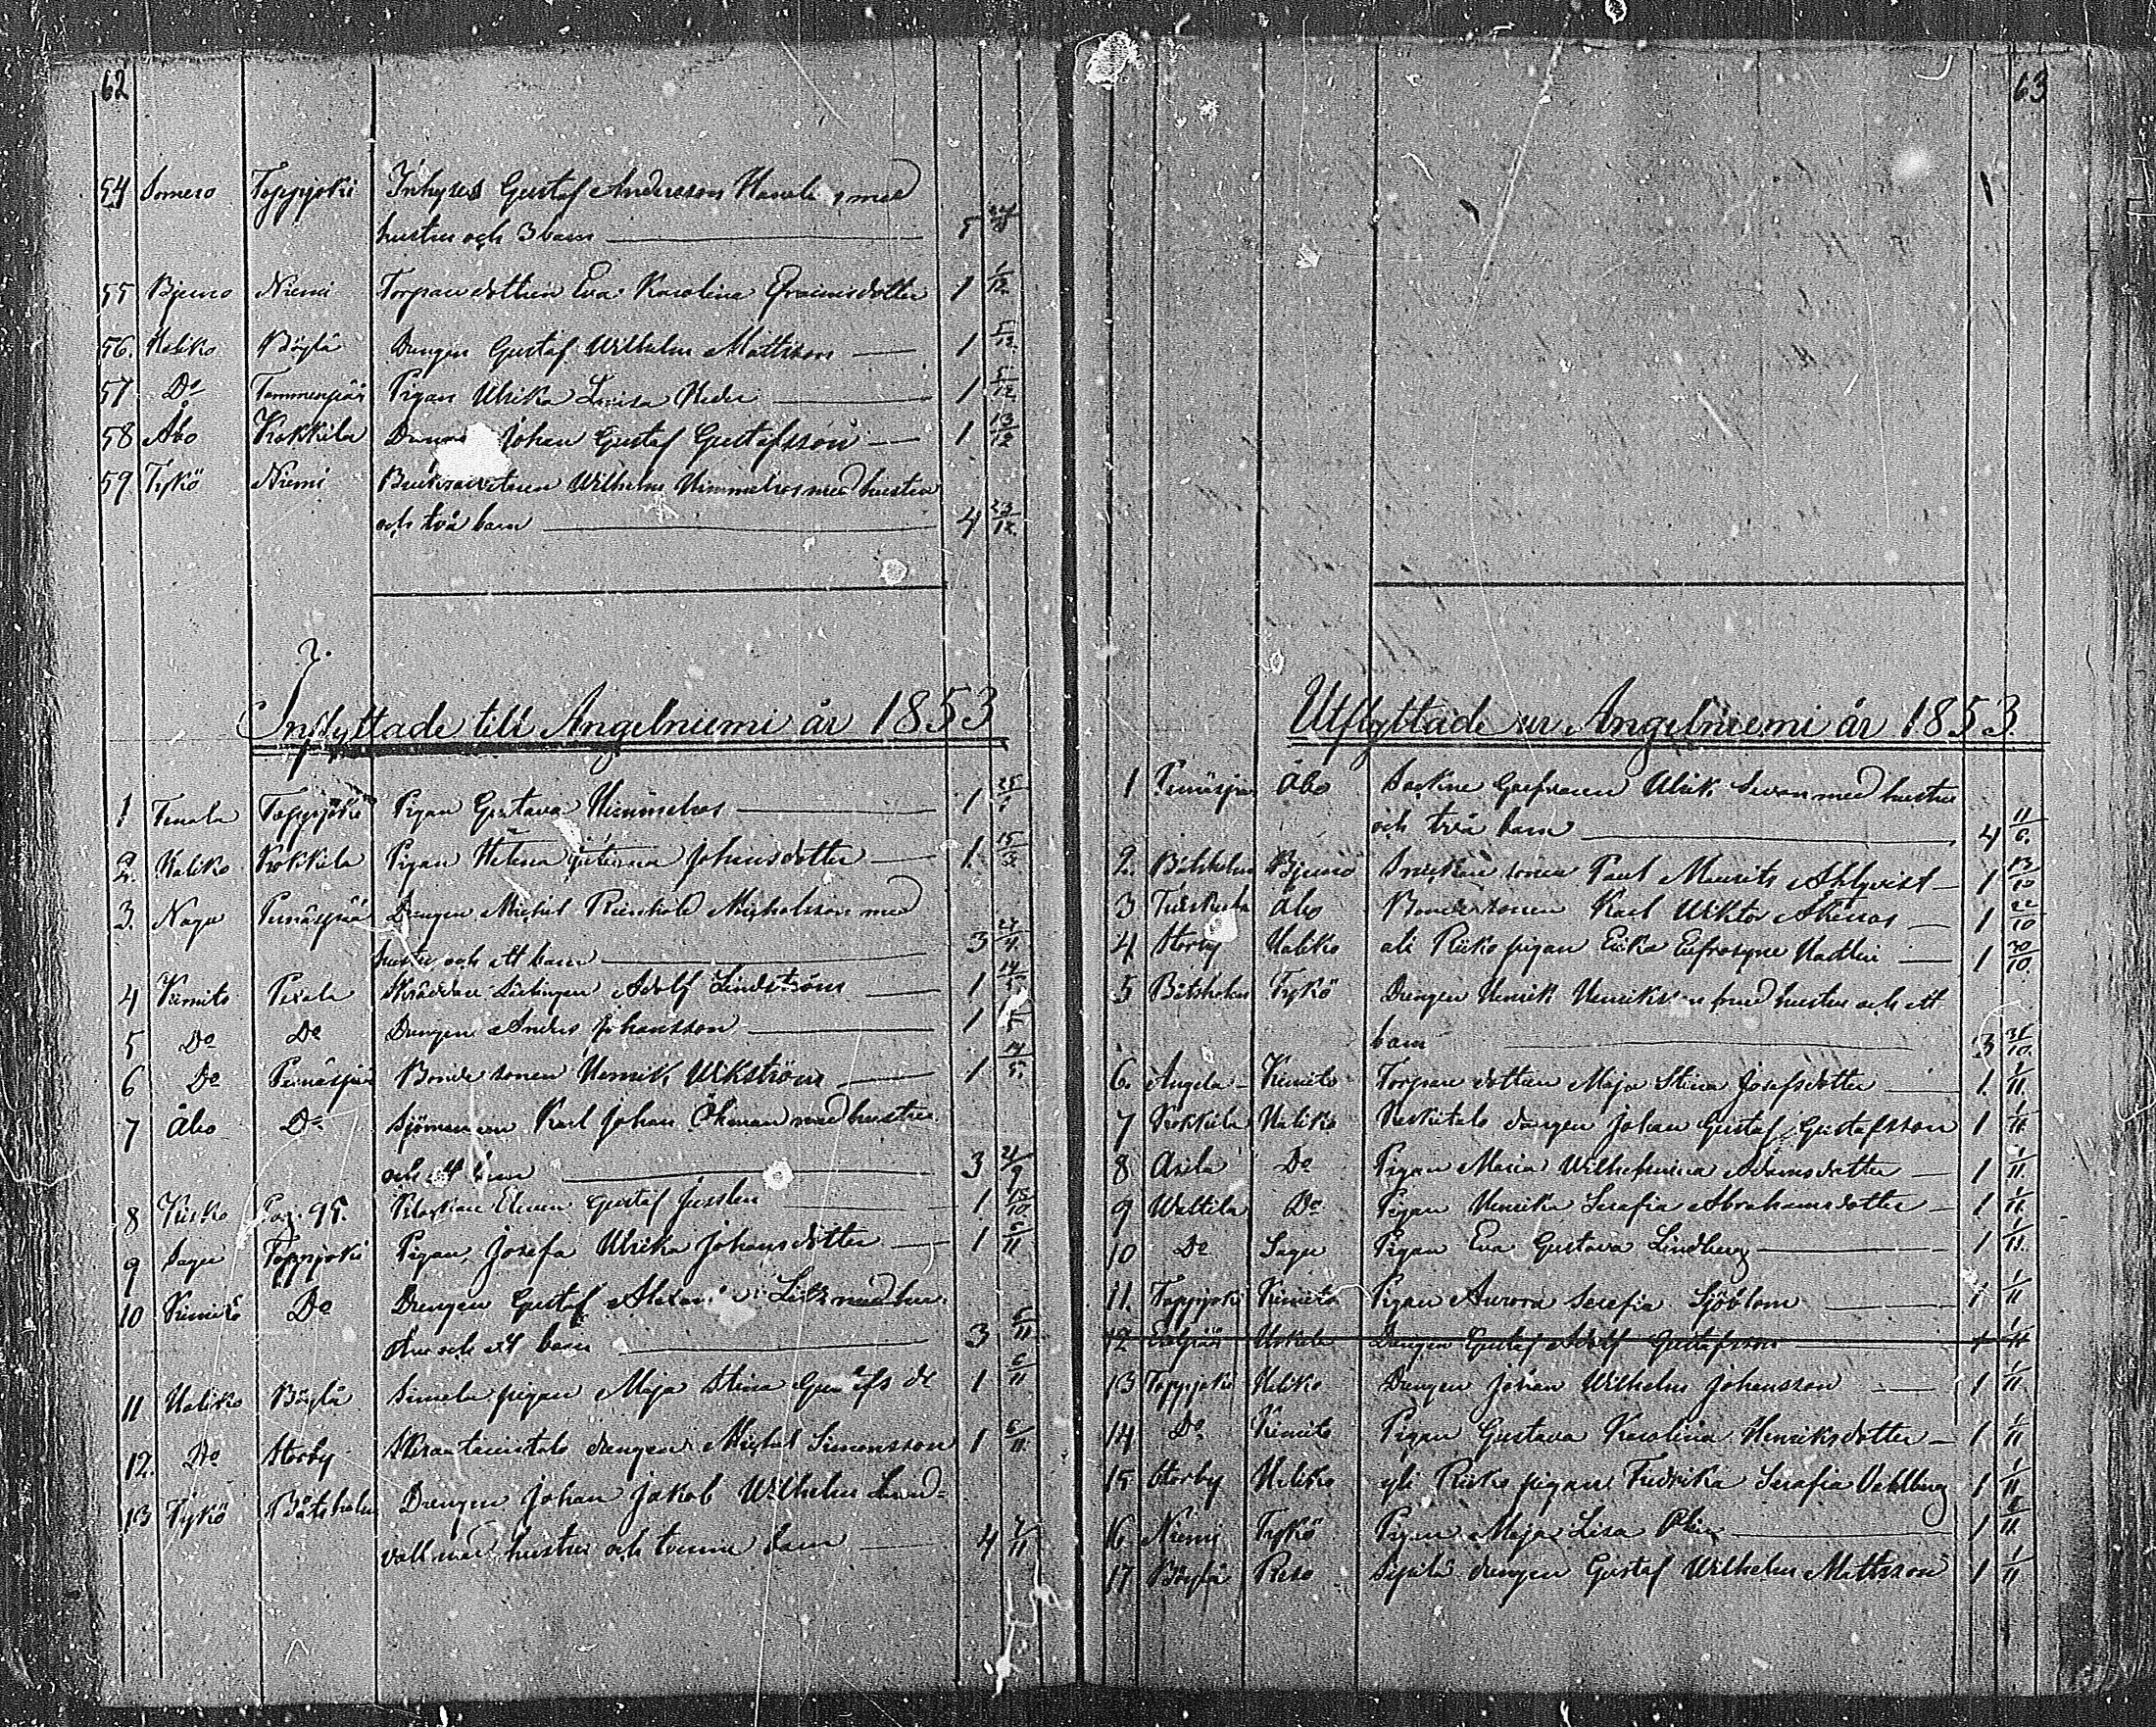 62
54 Somero Toppjoki Inhyses Gustaf Andersson med
hustru och 3 barn 5
55 Bjerno Niemi Torpare dottren Eva Karolina Efraimsdotter 1 1/12
56. Haliko Böylä Drengen Gustaf Wilhelm Mattsson 1 5/12
57 Do Tammenpää Pigan Ulrika Lovisa Heder 1 5/12
58 Åbo Kokkila Johan Gustaf Gustafsson 1 13/12
59 Tykö Niemi Wilhelm Himmelros med hustru
och två barn 4 23/12
Inflyttade till Angelniemi år 1853
1 Tenala Toppjoki Pigan Gustava Himmelros 1
2. Haliko Kokkila Pigan Helena Johansdotter 1
3. Nagu Pernäspää Drengen Michel Reinhold Michelsson med
hustru och ett barn 3
4 Kimito Peksala Skräddare Lärlingen Adolf Lindström 1
5 Do Do Drengen Anders Johansson 1
6 Do Pernäspää Bonde sonen Henrik Wikström 1
7 Åbo Do Sjömannen Karl Johan Öhman med hustru
och ett barn 3 21/9
8 Kisko Pag. 95. Gustaf 1
9 Sagu Toppjoki Pigan Josefa Ulrika Johansdotter 1 6/11
10 Kimito Do Drengen Gustaf med hu-
stru och ett barn 3 6/11
11 Haliko Böylä Simola pigan Maja Stina 1 6/11
12. Do Storby drengen Michel Simonsson 1 6/11
13 Tykö Båtsholm Drengen Johan Jakob Wilhelm Lund-
vall med hustru och tvenne barn 4 7/11
63
Utflyttade ur Angelniemi år 1853.
1 Pernäspää Åbo Ulrik med hustru
och två barn 4 11/6.
2. Båtsholm Bjerno Paul Maurits Ahlqvist 1 13/10
3 Åbo Bonde sonen Karl Wiktor 1 22/10
4 Storby Haliko Ali Riiko pigan Erika Eufrosyne 1 30/10.
5 Båtsholm Tykö Drengen Henrik Henriksson med hustru och ett
barn 3 31/10.
6. Angela Kimito Torpare dottren Maja Stina Josefsdotter 1. 1/11
7 Kokkila Haliko Keskitalo drengen Johan Gustaf Gustafsson 1 1/11
8 Asila Do Pigan Maria Wilhelmina Adamsdotter 1 1/11.
9 Waltila Do Pigan Henrika Serafia Abrahamsdotter 1 1/11
10 Do Sagu Pigan Eva Gustava Lindberg 1 1/11.
11. Toppjoki Kimito Pigan Aurora Serafia Sjöblom 1 1/11
12 Drengen Gustaf Adolf Gustafsson 1 1/11
13 Toppjoki Haliko Drengen Johan Wilhelm Johansson 1 1/11
14 Do Kimito Pigan Gustava Karolina Henriksdotter 1 1/11
15 Storby Haliko Riiko pigan Fredrika Serafia 1 1/11
16 Niemi Tykö Pigan Maja Lisa 1 1/11.
17 Böylä Reso drengen Gustaf Wilhelm Mattsson 1 1/11